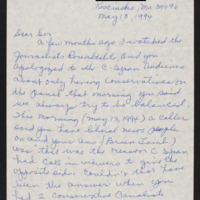 May 13, 1994
Dear Sir
A few months ago I watched the
Journalists Roundtable and you
apologized to the C-Span audience
about only having Conservatives on
the panel that morning you said
we always try to be balanced.
This morning (May 13, 1994) a caller
said you have liberal news people
on and you and (Brian Lamb)
was that was the reason C-Span
had call in viewers to give the
opposite side. Couldn't that have
been the answer when you
had 2 Conservative Journalists